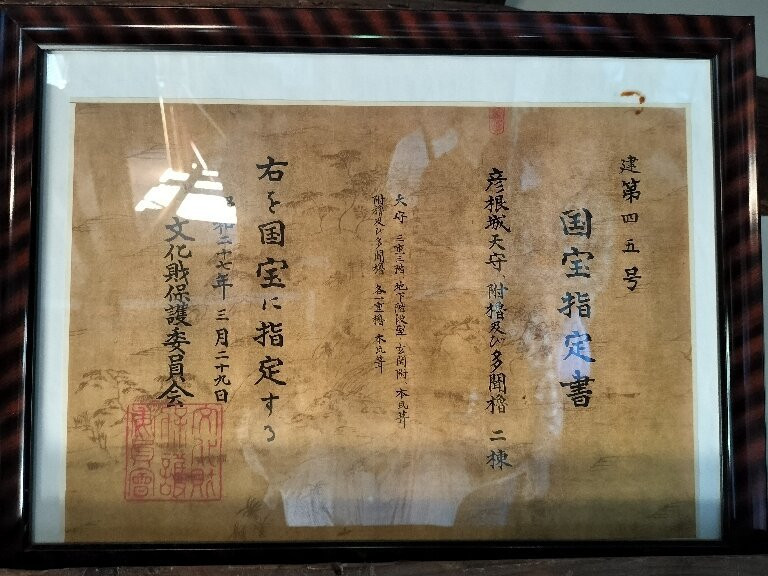 建第四五号
国宝指定書
彦根城天守、附櫓及び多聞櫓 二棟
天守 三重三階 地下階段室 玄関附 本瓦葺
附櫓及び多聞櫓 各一重櫓 本瓦葺
右を国宝に指定する
昭和二十七年三月二十九日
文化財保護委員会
文化財保護委員會